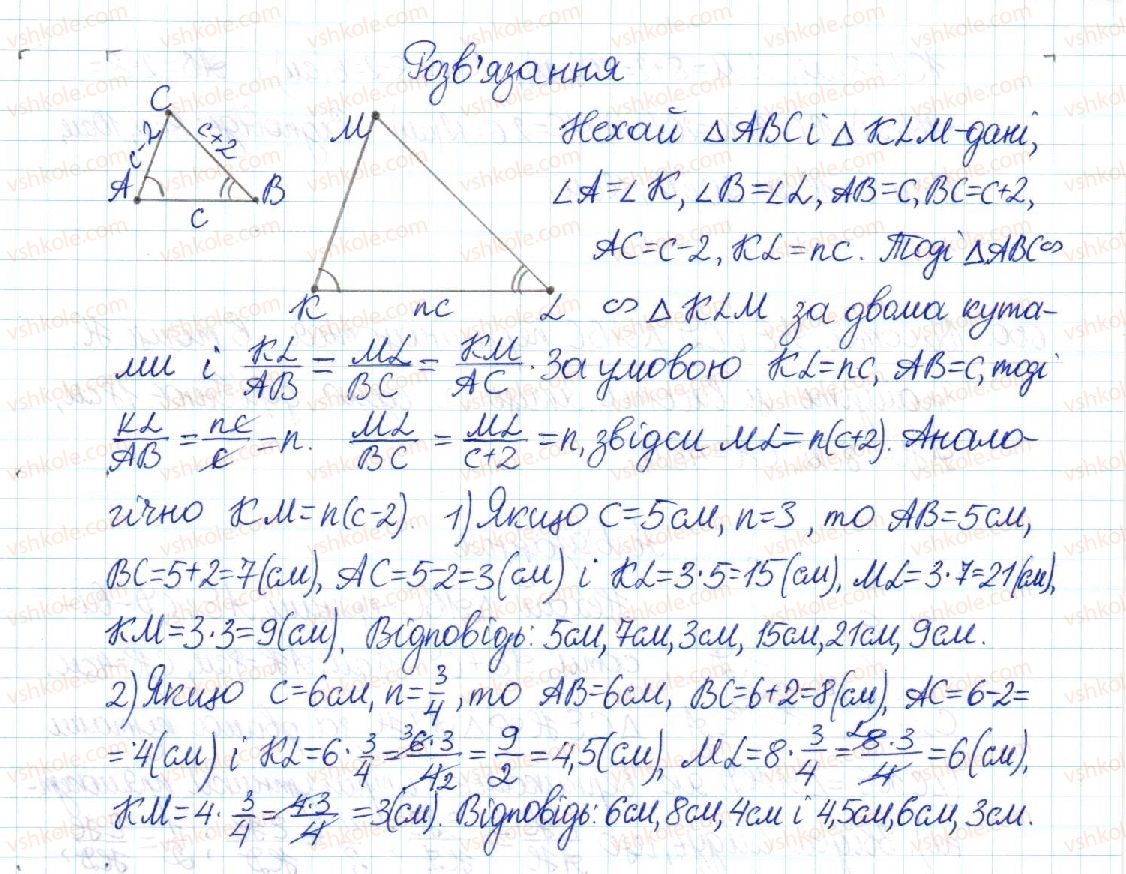 Розв'язання
C
c-2
c+2
A
B
c
M
K
nc
L
Нехай △ABC і △KLM-дані,
∠A=∠K, ∠B=∠L, AB=c, BC=c+2,
AC=c-2, KL=nc. Тоді △ABC∽
∽ △KLM за двома кута-
ми і KL/AB = ML/BC = KM/AC. За умовою KL=nc, AB=c, тоді
KL/AB = nc/c = n. ML/BC = ML/c+2 = n, звідси ML=n(c+2). Анало-
гічно KM=n(c-2). 1) Якщо c=5см, n=3, то AB=5см,
BC=5+2=7(см), AC=5-2=3(см) і KL=3·5=15(см), ML=3·7=21(см),
KM=3·3=9(см). Відповідь: 5см, 7см, 3см, 15см, 21см, 9см.
2) Якщо c=6см, n=3/4, то AB=6см, BC=6+2=8(см), AC=6-2=
=4(см) і KL=6·3/4=6·3/4=9/2=4,5(см), ML=8·3/4=8·3/4=6(см),
KM=4·3/4=4·3/4=3(см). Відповідь: 6см, 8см, 4см і 4,5см, 6см, 3см.